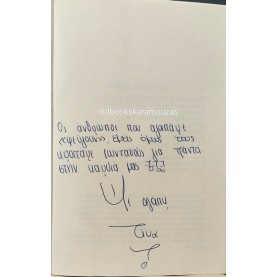 oldbookskaramouzas
Οι άνθρωποι που αγαπάμε
«φεύγουν», εμείς όμως τους
κρατάμε ζωντανούς για πάντα
στην καρδιά μας
Με αγάπη